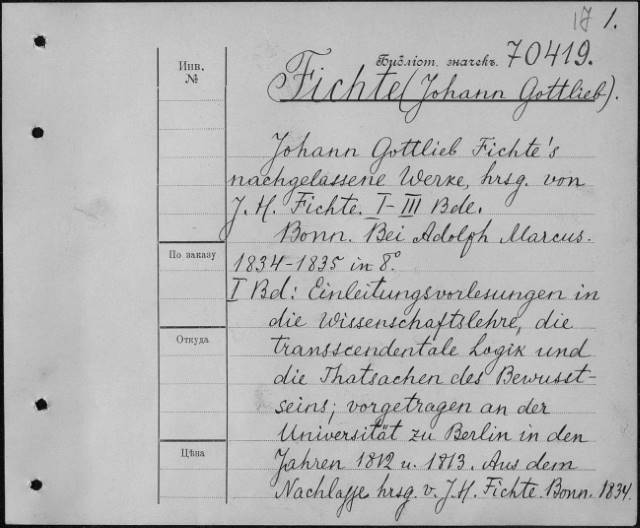 17 1.
Библіот. значекъ. 70419.
Инв.
№
Fichte (Johann Gottlieb).
Johann Gottlieb Fichte's
nachgelassene Werke, hrsg. von
J. H. Fichte. I-III Bde.
Bonn. Bei Adolph Marcus.
По заказу
1834-1835 in 8°
I Bd: Einleitungsvorlesungen in
die Wissenschaftslehre, die
Откуда
transscendentale Logik und
die Thatsachen des Bewusst-
seins; vorgetragen an der
Universität zu Berlin in den
Цѣна
Jahren 1812 u. 1813. Aus dem
Nachlasse hrsg. v. J. H. Fichte. Bonn. 1834.